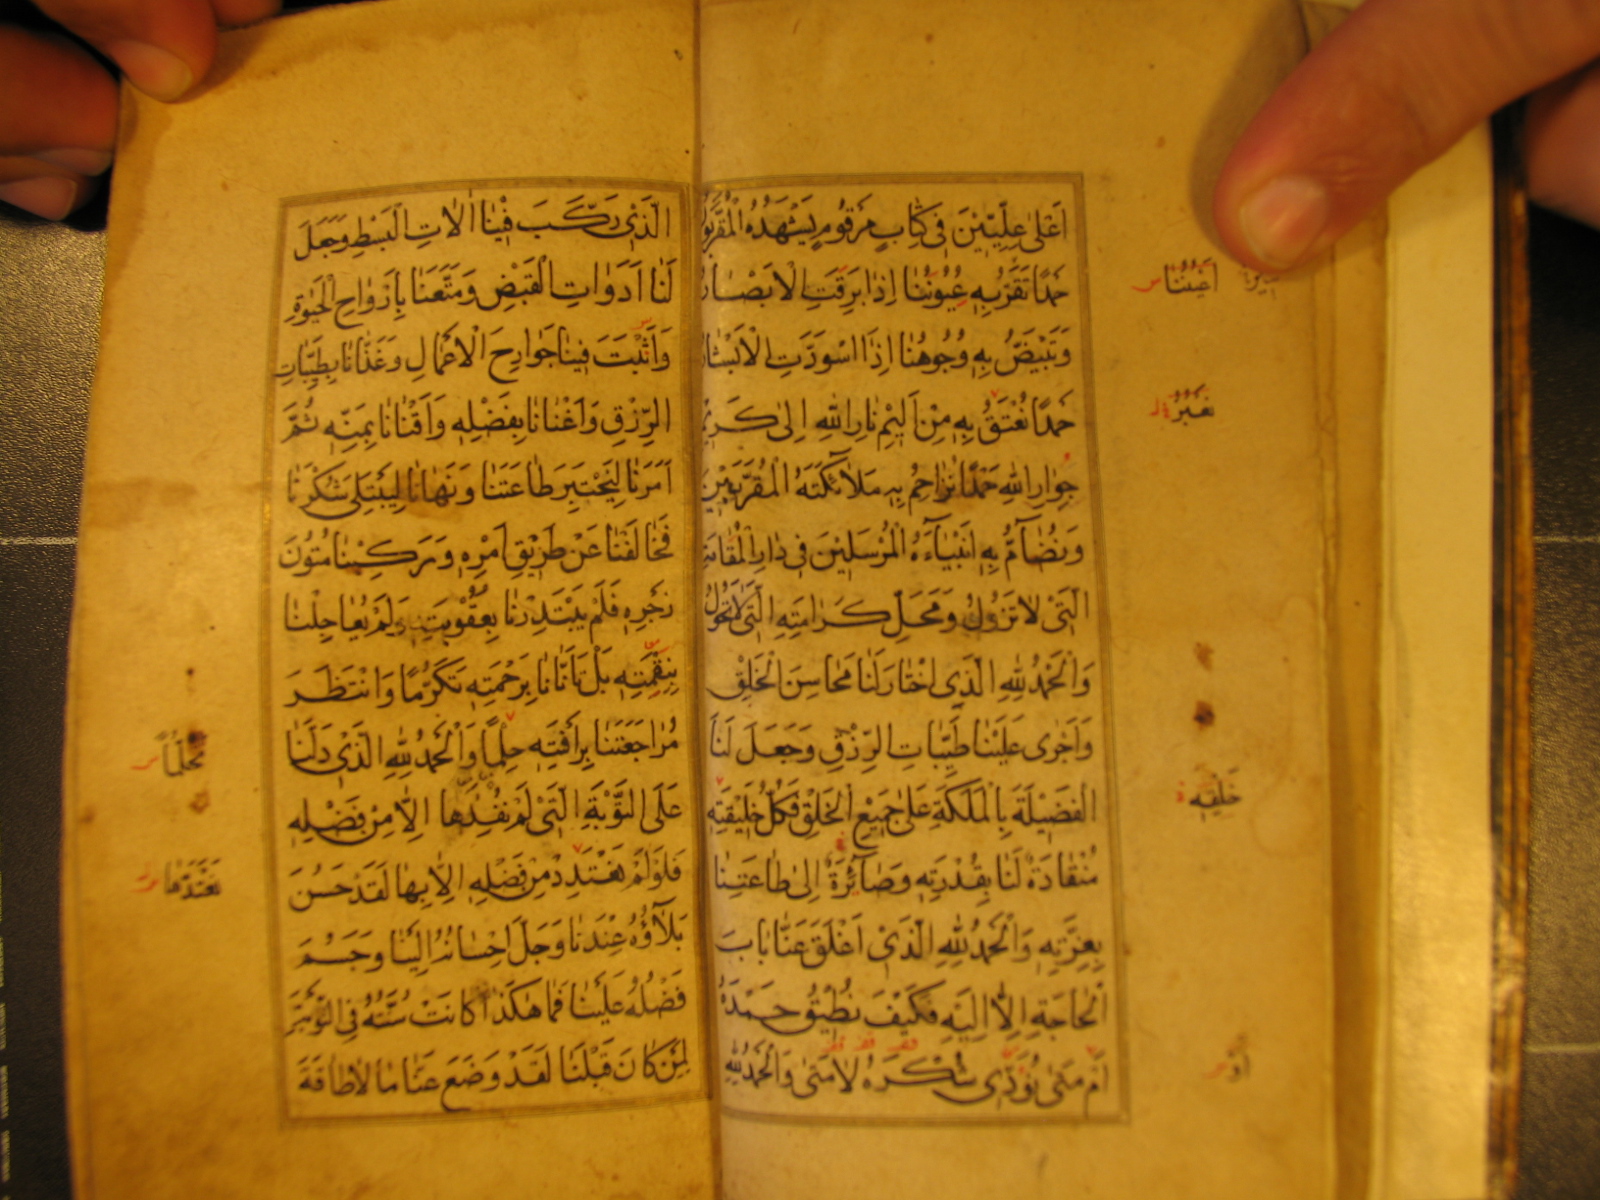 اَعْلٰى عِلِّيّٖينَ فٖى كِتَابٍ مَرْقُومٍ يَشْهَدُهُ الْمُقَرَّبُو
حَمْدًا تَقَرُّ بِهٖ عُيُونُنَا اِذَا بَرِقَتِ الْاَبْصَارُ
وَتَبْيَضُّ بِهٖ وُجُوهُنَا اِذَا اسْوَدَّتِ الْاَبْشَارُ
حَمْدًا نُعْتَقُ بِهٖ مِنْ اَلٖيمِ نَارِ اللّٰهِ اِلٰى كَرٖيمِ
جِوَارِ اللّٰهِ حَمْدًا نُزَاحِمُ بِهٖ مَلَائِكَتَهُ الْمُقَرَّبٖينَ
وَنُضَامُّ بِهٖ اَنْبِيَآءَهُ الْمُرْسَلٖينَ فٖى دَارِ الْمُقَامَةِ
الَّتٖى لَا تَزُولُ وَمَحَلِّ كَرَامَتِهِ الَّتٖى لَا تَحُولُ
وَالْحَمْدُ لِلّٰهِ الَّذٖى اخْتَارَ لَنَا مَحَاسِنَ الْخَلْقِ
وَاَجْرٰى عَلَيْنَا طَيِّبَاتِ الرِّزْقِ وَجَعَلَ لَنَا
الْفَضٖيلَةَ بِالْمَلَكَةِ عَلٰى جَمٖيعِ الْخَلْقِ فَكُلُّ خَلٖيقَتِهٖ
مُنْقَادَةٌ لَنَا بِقُدْرَتِهٖ وَصَآئِرَةٌ اِلٰى طَاعَتِنَا
بِعِزَّتِهٖ وَالْحَمْدُ لِلّٰهِ الَّذٖى اَغْلَقَ عَنَّا بَابَ
الْحَاجَةِ اِلَّا اِلَيْهِ فَكَيْفَ نُطٖيقُ حَمْدَهُ
اَمْ مَتٰى نُؤَدّٖى شُكْرَهُ لَا مَتٰى وَالْحَمْدُ لِلّٰهِ
اَعْيُنُنَا س
نعبر
خَلْقِهٖ ة
اَوْ س
الَّذٖى رَكَّبَ فٖينَا اٰلَاتِ الْبَسْطِ وَجَعَلَ
لَنَا اَدَوَاتِ الْقَبْضِ وَمَتَّعَنَا بِاَرْوَاحِ الْحَيٰوةِ
وَاَثْبَتَ فٖينَا جَوَارِحَ الْاَعْمَالِ وَغَذَّانَا بِطَيِّبَاتِ
الرِّزْقِ وَاَغْنَانَا بِفَضْلِهٖ وَاَقْنَانَا بِمَنِّهٖ ثُمَّ
اَمَرَنَا لِيَخْتَبِرَ طَاعَتَنَا وَنَهَانَا لِيَبْتَلِىَ شُكْرَنَا
فَخَالَفْنَا عَنْ طَرٖيقِ اَمْرِهٖ وَرَكِبْنَا مُتُونَ
زَجْرِهٖ فَلَمْ يَبْتَدِرْنَا بِعُقُوبَتِهٖ وَلَمْ يُعَاجِلْنَا
بِنِقْمَتِهٖ بَلْ تَاَنَّانَا بِرَحْمَتِهٖ تَكَرُّمًا وَانْتَظَرَ
مُرَاجَعَتَنَا بِرَاْفَتِهٖ حِلْمًا وَالْحَمْدُ لِلّٰهِ الَّذٖى دَلَّنَا
عَلَى التَّوْبَةِ الَّتٖى لَمْ نُفِدْهَا اِلَّا مِنْ فَضْلِهٖ
فَلَوْ لَمْ نَعْتَدِدْ مِنْ فَضْلِهٖ اِلَّا بِهَا لَقَدْ حَسُنَ
بَلَآؤُهُ عِنْدَنَا وَجَلَّ اِحْسَانُهُ اِلَيْنَا وَجَسُمَ
فَضْلُهُ عَلَيْنَا فَمَا هٰكَذَا كَانَتْ سُنَّتُهُ فِى التَّوْبَةِ
لِمَنْ كَانَ قَبْلَنَا لَقَدْ وَضَعَ عَنَّا مَا لَا طَاقَةَ
تَحَلُّمًا س
نَعْتَدَّهَا س